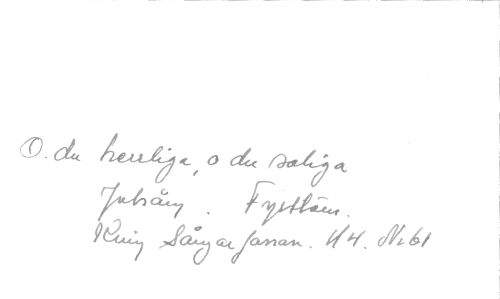 O. du herrliga, o du saliga
Julsång. Fyrstäm.
Kring Sångarfanan. H4. N:61